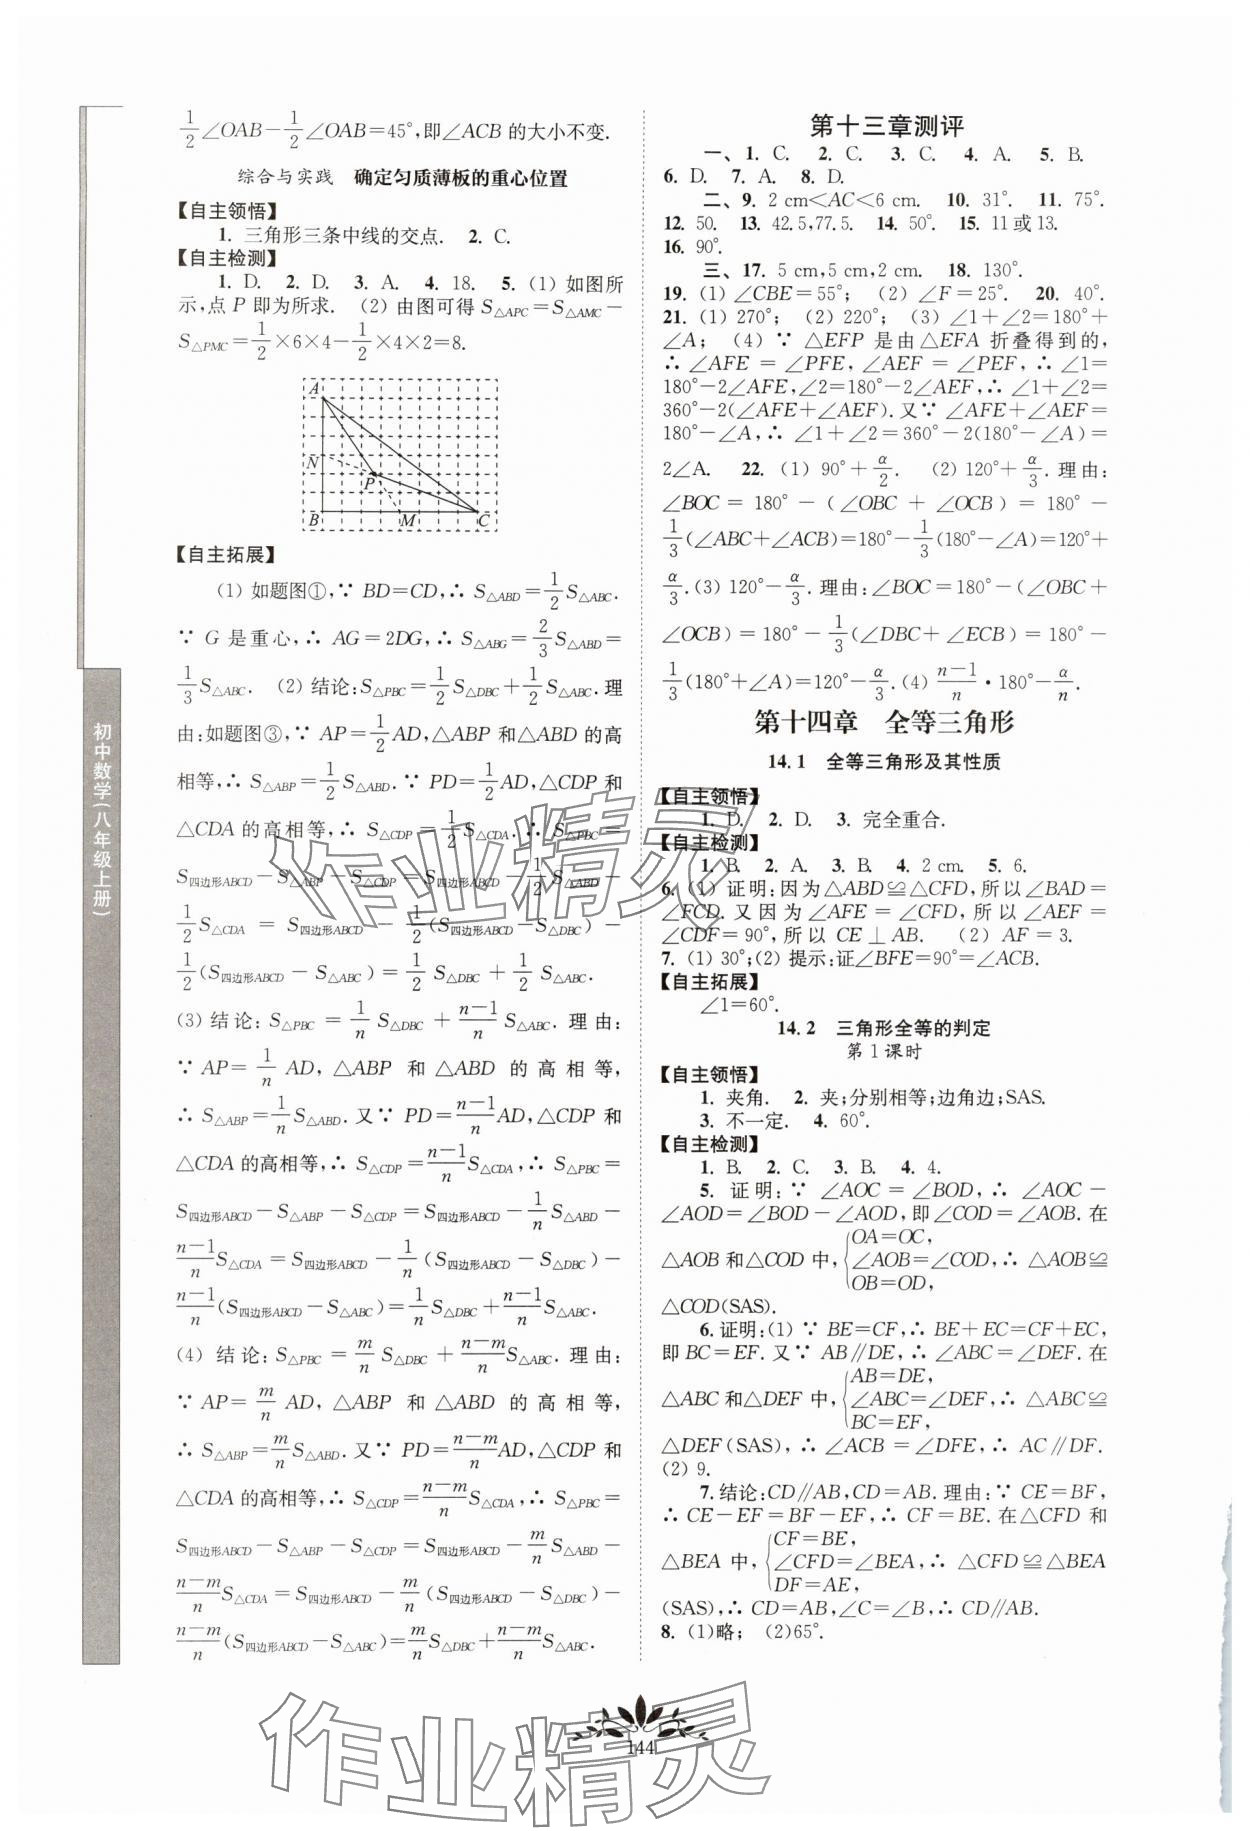 1/2∠OAB−1/2∠OAB=45°,即∠ACB 的大小不变.
综合与实践 确定匀质薄板的重心位置
【自主领悟】
1. 三角形三条中线的交点. 2. C.
【自主检测】
1. D. 2. D. 3. A. 4. 18. 5. (1) 如图所
示,点 P 即为所求. (2) 由图可得 S△APC=S△AMC−
S△PMC=1/2×6×4−1/2×4×2=8.
A
N
P
B M C
【自主拓展】
(1) 如题图①,∵ BD=CD,∴ S△ABD=1/2S△ABC.
∵ G 是重心,∴ AG=2DG,∴ S△ABG=2/3S△ABD=
1/3S△ABC. (2) 结论:S△PBC=1/2S△DBC+1/2S△ABC.理
由:如题图③,∵ AP=1/2AD,△ABP 和△ABD 的高
相等,∴ S△ABP=1/2S△ABD.∵ PD=1/2AD,△CDP 和
△CDA 的高相等,∴ S△CDP=1/2S△CDA,∴ S△PBC=
S四边形ABCD−S△ABP−S△CDP=S四边形ABCD−1/2S△ABD−
1/2S△CDA=S四边形ABCD−1/2(S四边形ABCD−S△DBC)−
1/2(S四边形ABCD−S△ABC)=1/2S△DBC+1/2S△ABC.
(3) 结论:S△PBC=1/nS△DBC+(n−1)/nS△ABC.理由:
∵ AP=1/nAD,△ABP 和 △ABD 的高相等,
∴ S△ABP=1/nS△ABD.又∵ PD=(n−1)/nAD,△CDP 和
△CDA 的高相等,∴ S△CDP=(n−1)/nS△CDA,∴ S△PBC=
S四边形ABCD−S△ABP−S△CDP=S四边形ABCD−1/nS△ABD−
(n−1)/nS△CDA=S四边形ABCD−1/n(S四边形ABCD−S△DBC)−
(n−1)/n(S四边形ABCD−S△ABC)=1/nS△DBC+(n−1)/nS△ABC.
(4) 结论:S△PBC=m/nS△DBC+(n−m)/nS△ABC.理由:
∵ AP=m/nAD,△ABP 和 △ABD 的高相等,
∴ S△ABP=m/nS△ABD.又∵ PD=(n−m)/nAD,△CDP 和
△CDA 的高相等,∴ S△CDP=(n−m)/nS△CDA,∴ S△PBC=
S四边形ABCD−S△ABP−S△CDP=S四边形ABCD−m/nS△ABD−
(n−m)/nS△CDA=S四边形ABCD−m/n(S四边形ABCD−S△DBC)−
(n−m)/n(S四边形ABCD−S△ABC)=m/nS△DBC+(n−m)/nS△ABC.
第十三章测评
一、1. C. 2. C. 3. C. 4. A. 5. B.
6. D. 7. A. 8. D.
二、9. 2 cm<AC<6 cm. 10. 31°. 11. 75°.
12. 50. 13. 42.5,77.5. 14. 50°. 15. 11或13.
16. 90°.
三、17. 5 cm,5 cm,2 cm. 18. 130°.
19. (1) ∠CBE=55°; (2) ∠F=25°. 20. 40°.
21. (1) 270°; (2) 220°; (3) ∠1+∠2=180°+
∠A; (4) ∵ △EFP 是由△EFA 折叠得到的,
∴ ∠AFE=∠PFE,∠AEF=∠PEF,∴ ∠1=
180°−2∠AFE,∠2=180°−2∠AEF,∴ ∠1+∠2=
360°−2(∠AFE+∠AEF).又∵ ∠AFE+∠AEF=
180°−∠A,∴ ∠1+∠2=360°−2(180°−∠A)=
2∠A. 22. (1) 90°+α/2. (2) 120°+α/3.理由:
∠BOC=180°−(∠OBC+∠OCB)=180°−
1/3(∠ABC+∠ACB)=180°−1/3(180°−∠A)=120°+
α/3.(3) 120°−α/3.理由:∠BOC=180°−(∠OBC+
∠OCB)=180°−1/3(∠DBC+∠ECB)=180°−
1/3(180°+∠A)=120°−α/3.(4) (n−1)/n·180°−α/n.
第十四章 全等三角形
14.1 全等三角形及其性质
【自主领悟】
1. D. 2. D. 3. 完全重合.
【自主检测】
1. B. 2. A. 3. B. 4. 2 cm. 5. 6.
6. (1) 证明:因为△ABD≌△CFD,所以∠BAD=
∠FCD.又因为∠AFE=∠CFD,所以∠AEF=
∠CDF=90°,所以 CE⊥AB. (2) AF=3.
7. (1) 30°;(2) 提示:证∠BFE=90°=∠ACB.
【自主拓展】
∠1=60°.
14.2 三角形全等的判定
第1课时
【自主领悟】
1. 夹角. 2. 夹;分别相等;边角边;SAS.
3. 不一定. 4. 60°.
【自主检测】
1. B. 2. C. 3. B. 4. 4.
5. 证明:∵ ∠AOC=∠BOD,∴ ∠AOC−
∠AOD=∠BOD−∠AOD,即∠COD=∠AOB.在
△AOB 和△COD 中,{OA=OC, ∠AOB=∠COD, OB=OD, ∴ △AOB≌
△COD(SAS).
6.证明:(1) ∵ BE=CF,∴ BE+EC=CF+EC,
即 BC=EF.又∵ AB∥DE,∴ ∠ABC=∠DEF.在
△ABC 和△DEF 中,{AB=DE, ∠ABC=∠DEF, BC=EF, ∴ △ABC≌
△DEF(SAS),∴ ∠ACB=∠DFE,∴ AC∥DF.
(2) 9.
7.结论:CD∥AB,CD=AB.理由:∵ CE=BF,
∴ CE−EF=BF−EF,∴ CF=BE.在△CFD 和
△BEA 中,{CF=BE, ∠CFD=∠BEA, DF=AE, ∴ △CFD≌△BEA
(SAS),∴ CD=AB,∠C=∠B,∴ CD∥AB.
8. (1)略; (2)65°.
初中数学(八年级上册)
作业精灵
作业精灵
144